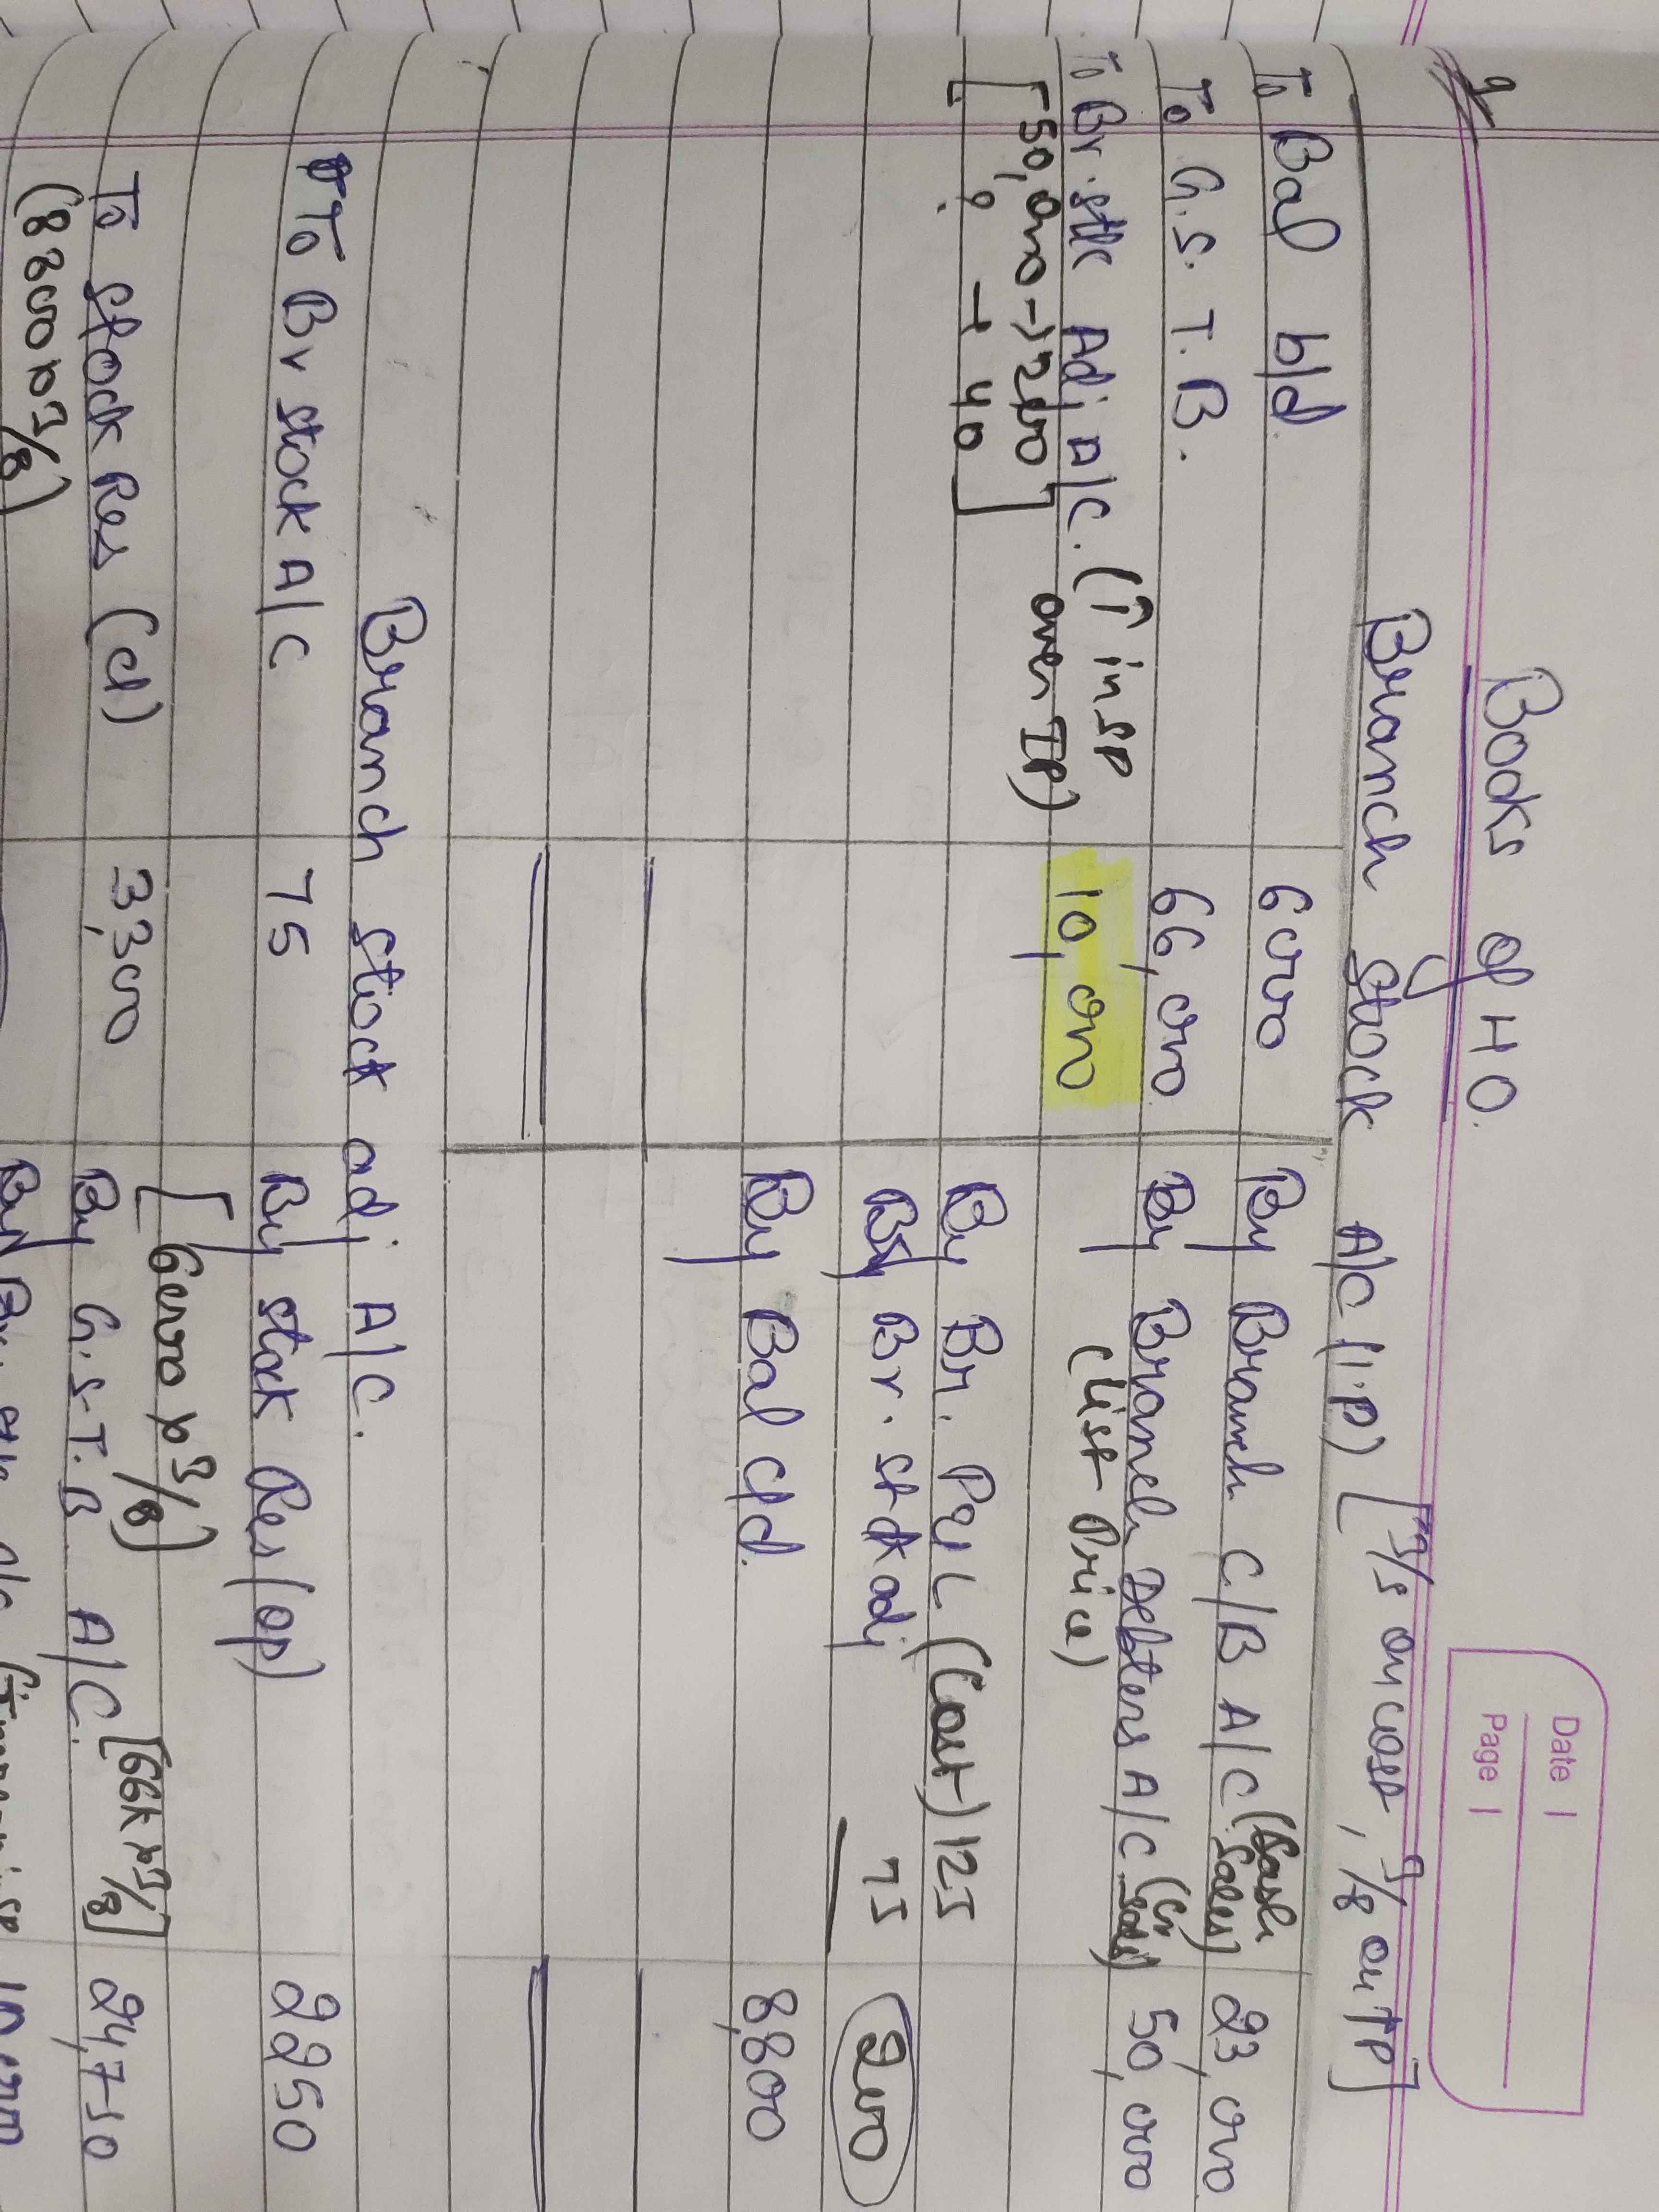 Date |
Page |
Books of HO.
Branch Stock A/C (I.P) [3/5 on cost, 3/8 on IP]
To Bal b/d. 6000 By Branch C/B A/C (Cash Sales) 23,000
To G.S.T.B. 66,000 By Branch Debtors A/C (Cr Sales) 50,000
To Br. stk Adj A/C. (↑ in SP over IP) 10,000 (List Price)
[50,000 → 200
? → 40]
By Br. P&L (Cost) 125
By Br. stk adj 75 200
By Bal c/d. 8,800
Branch stock adj A/C.
To Br stock A/C 75 By stock Res (op) 2250
[6000 x 3/8]
To stock Res (cl) 3,300 By G.S.T.B. A/C. [66k x 3/8] 24,750
(8800 x 3/8)